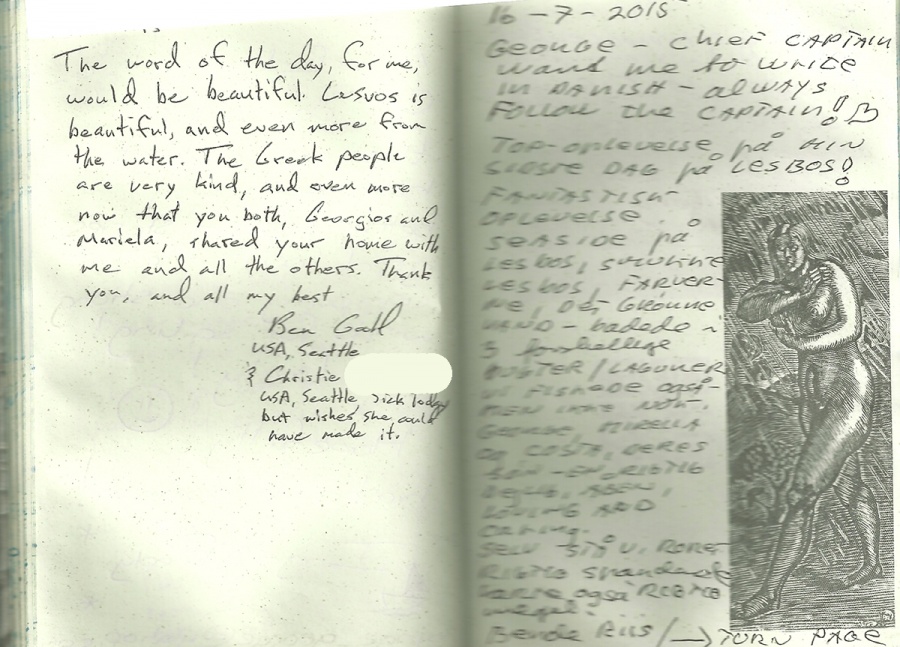 The word of the day, for me,
would be beautiful. Lesvos is
beautiful, and even more from
the water. The Greek people
are very kind, and even more
now that you both, Georgios and
Mariela, shared your home with
me and all the others. Thank
you, and all my best
Ben
USA, Seattle
& Christie
USA, Seattle, sick today
but wishes she could
have made it.
16-7-2015
GEORGE - CHIEF CAPTAIN
want me to WRITE
IN DANISH - always
FOLLOW the CAPTAIN!
TOP-OPLEVELSE på MIN
SIDSTE DAG på LESBOS!
FANTASTISK
OPLEVELSE.
SEASIDE på
LESBOS, SMUKKE
LESBOS, FARVER-
NE, DET GRØNNE
VAND - badede i
3 forskellige
BUGTER / LAGUNER
VI FISKEDE også -
MEN IKKE NOK.
GEORGE MIRELLA
OG COSTA, DERES
SØN - EN RIGTIG
DEJLIG, ÅBEN,
LOVING AND
caring.
RIGTIG
også
meget.
Bende Riis / → TURN PAGE